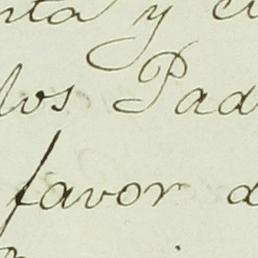 nta y ci
los Pad
favor d